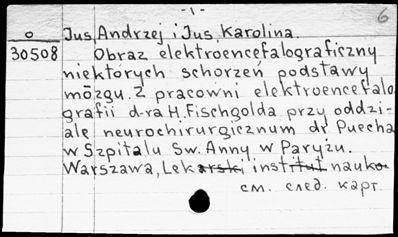 - 1 -
6
o Jus, Andrzej i Jus, Karolina.
30508 Obraz elektroencefalograficzny
niektórych schorzeń podstawy
mózgu. Z pracowni elektroencefalo
grafii d-ra H. Fischgolda przy oddzi-
ale neurochirurgicznum dr Puecha
w Szpitalu Sw. Anny w Paryżu.
Warszawa, Lekarski institut nauko.
см. след. карт.